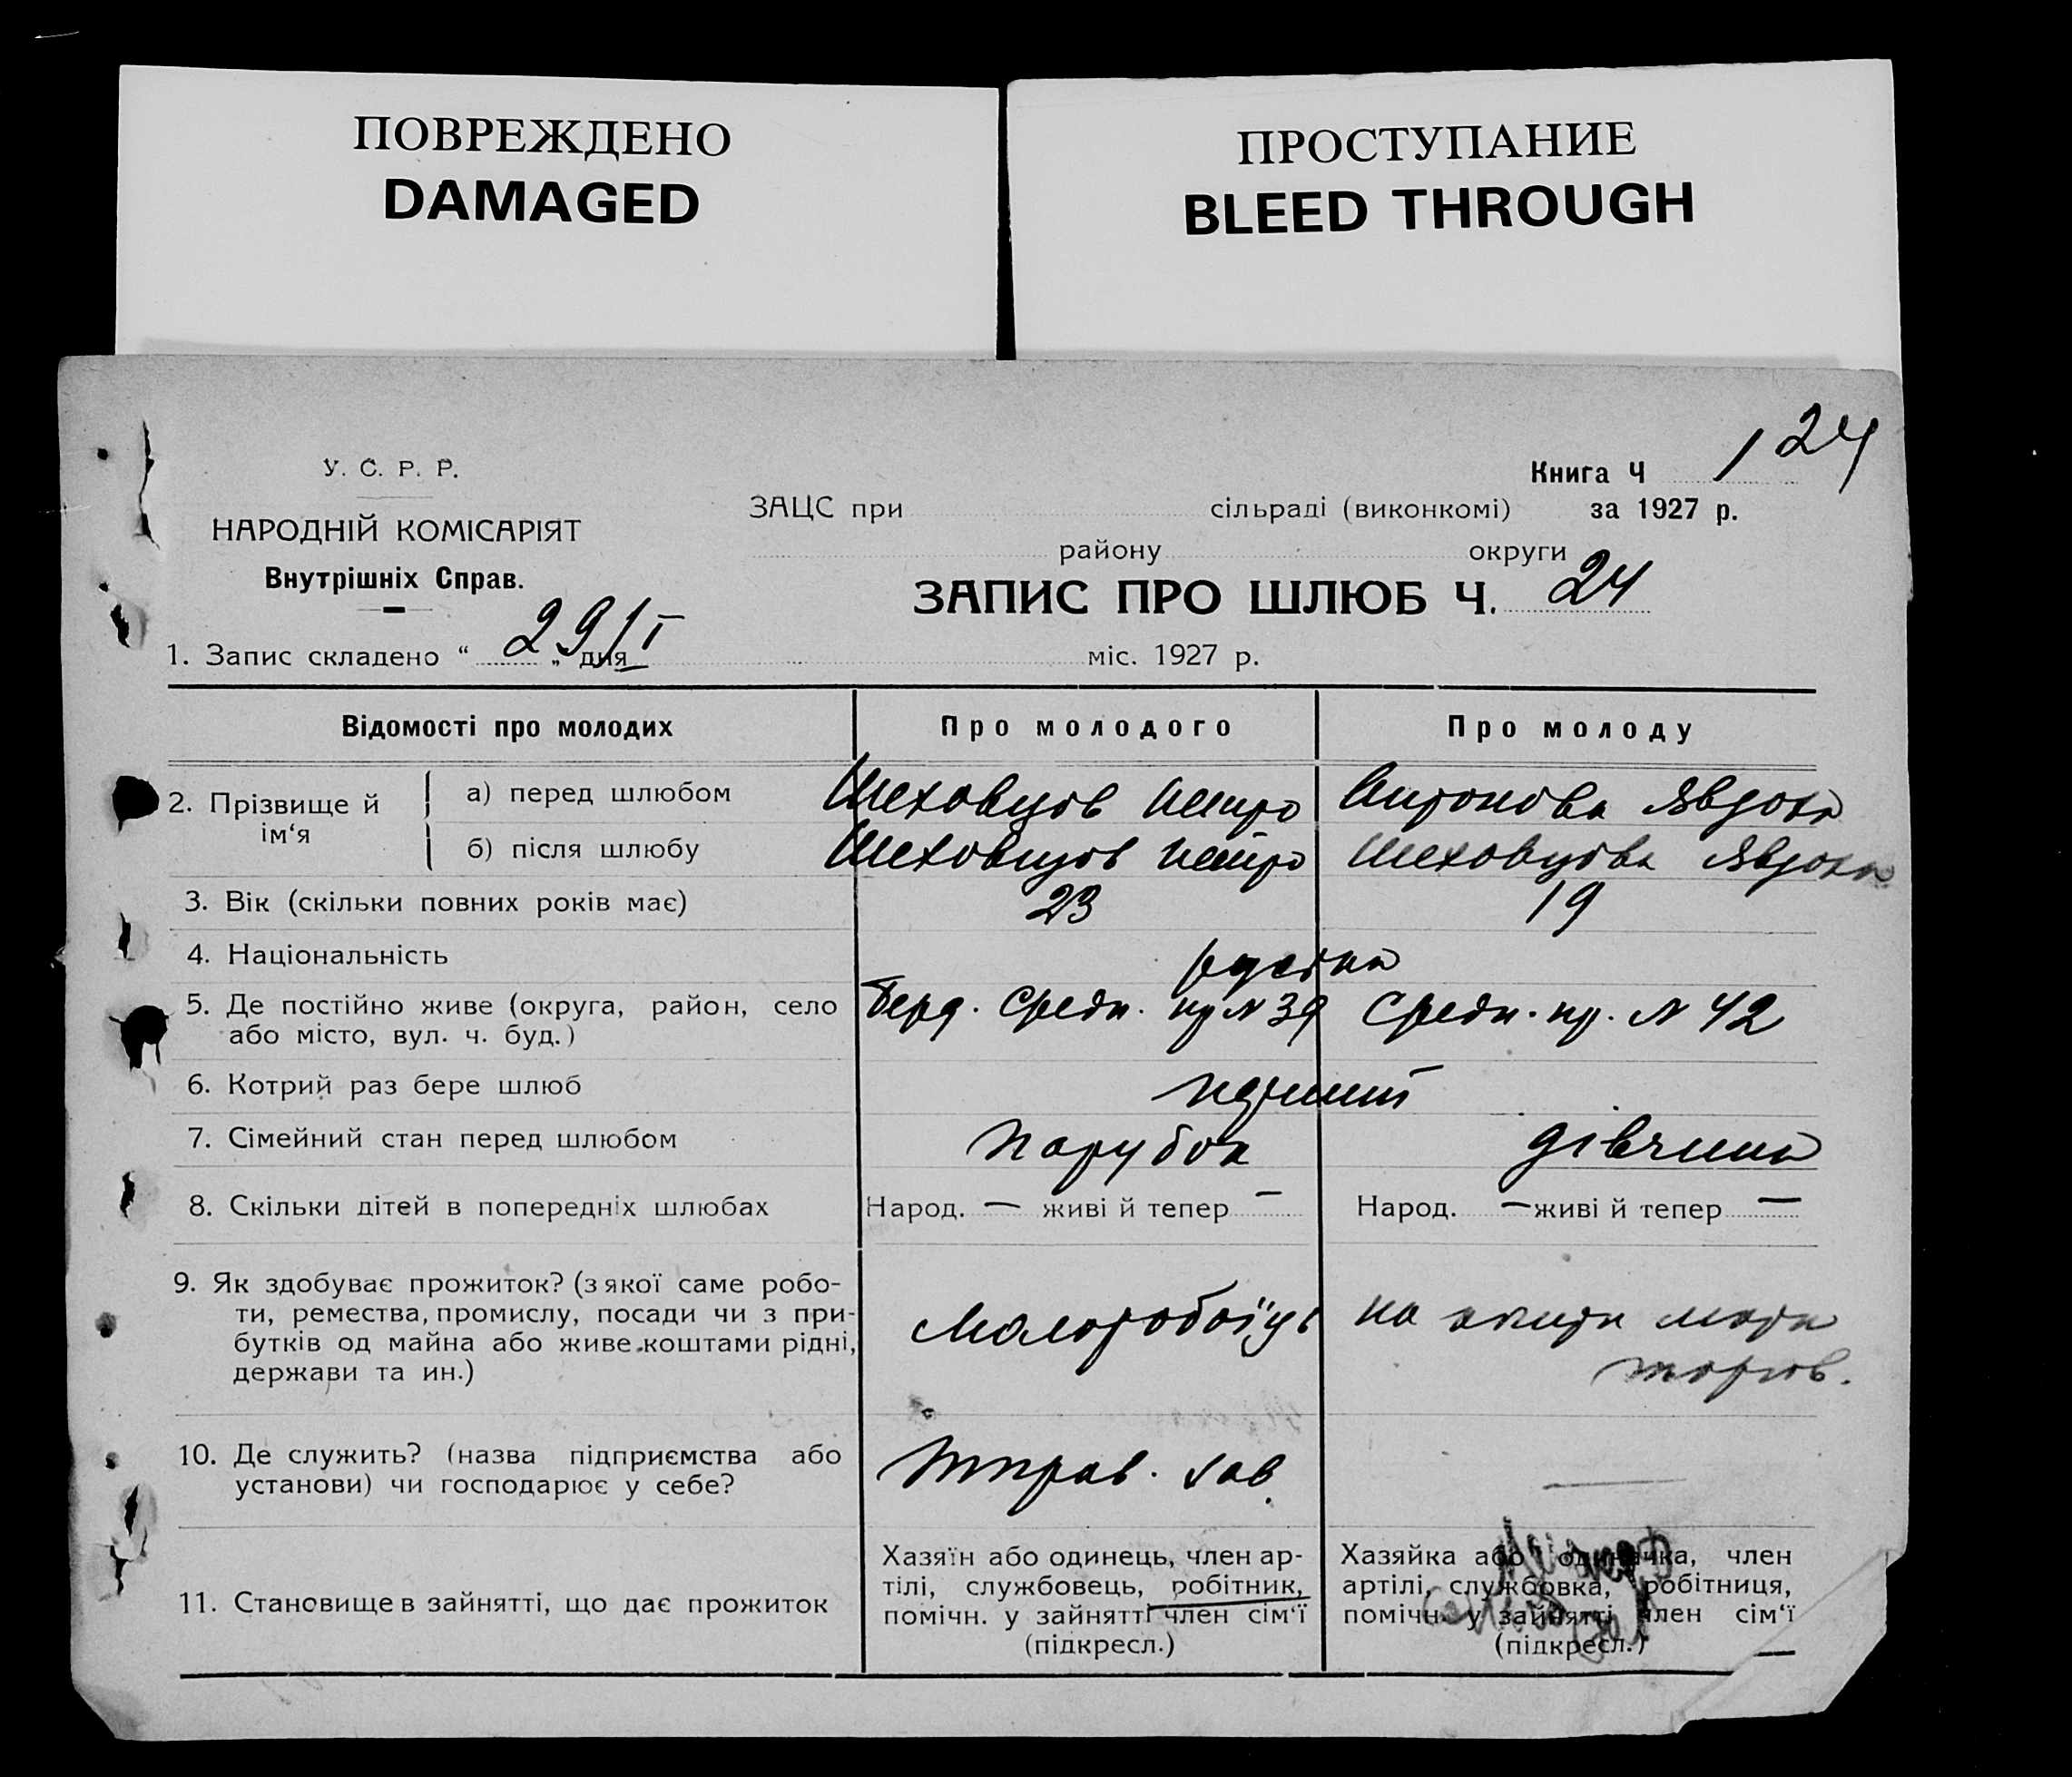 ПОВРЕЖДЕНО
DAMAGED
ПРОСТУПАНИЕ
BLEED THROUGH
124
У. С. Р. Р.
НАРОДНІЙ КОМІСАРІЯТ
Внутрішніх Справ.
Книга Ч
ЗАЦС при сільраді (виконкомі) за 1927 р.
району округи
ЗАПИС ПРО ШЛЮБ Ч. 24
1. Запис складено “ 29/I „ дня міс. 1927 р.
Відомості про молодих Про молодого Про молоду
2. Прізвище й ім‘я
а) перед шлюбом Шеховцов Петро Явдоха
б) після шлюбу Шеховцов Петро Шеховцова Явдоха
3. Вік (скільки повних років має) 23 19
4. Національність
5. Де постійно живе (округа, район, село Берд. Средн. пр № 39 Средн. пр. № 42
або місто, вул. ч. буд.)
6. Котрий раз бере шлюб
7. Сімейний стан перед шлюбом парубок дівчина
8. Скільки дітей в попередніх шлюбах Народ. — живі й тепер — Народ. — живі й тепер —
9. Як здобуває прожиток? (з якої саме робо-
ти, ремества, промислу, посади чи з при-
бутків од майна або живе коштами рідні,
держави та ин.)
на
10. Де служить? (назва підприємства або
установи) чи господарює у себе?
11. Становище в зайнятті, що дає прожиток
Хазяїн або одинець, член ар-
тілі, службовець, робітник,
помічн. у зайнятті член сім‘ї
(підкресл.)
Хазяйка або одиначка, член
артілі, службовка, робітниця,
помічн. у зайнятті член сім‘ї
(підкресл.)